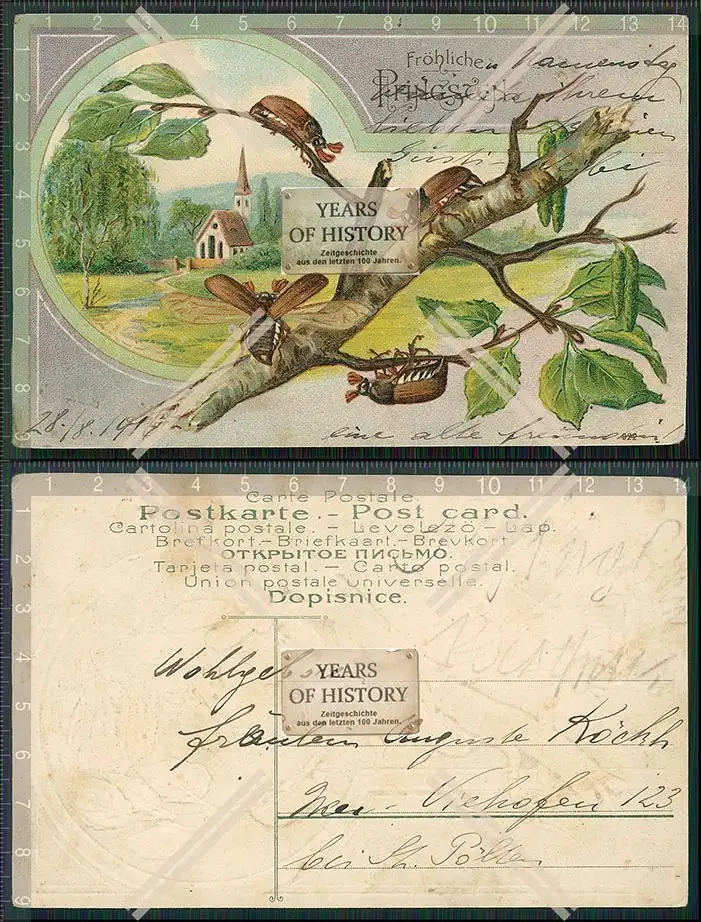 1 2 3 4 5 6 7 8 9 10 11 12 13 14
Fröhliche Namenstag
PFINGSTEN Ihrem
bei
2
3
4
5
6
7
8
9
YEARS
OF HISTORY
Zeitgeschichte
aus den letzten 100 Jahren.
28./8.
eine alte
1 2 3 4 5 6 7 8 9 10 11 12 13 14
Carte Postale.
Postkarte. - Post card.
Cartolina postale. - Levelező - Lap.
Brefkort.- Briefkaart.- Brevkort.
ОТКРЫТОЕ ПИСЬМО.
Tarjeta postal. - Carto postal.
Union postale universelle.
Dopisnice.
2
3
4
5
6
7
8
9
YEARS
OF HISTORY
Zeitgeschichte
aus den letzten 100 Jahren.
Wohlgeboren
Fräulein Auguste Köckh
Viehofen 123
bei St. Pölten